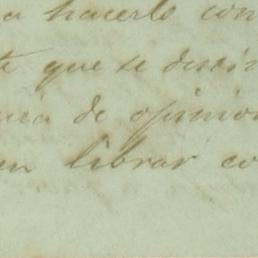 a hacerlo con
que se diera
de opinion
en librar co